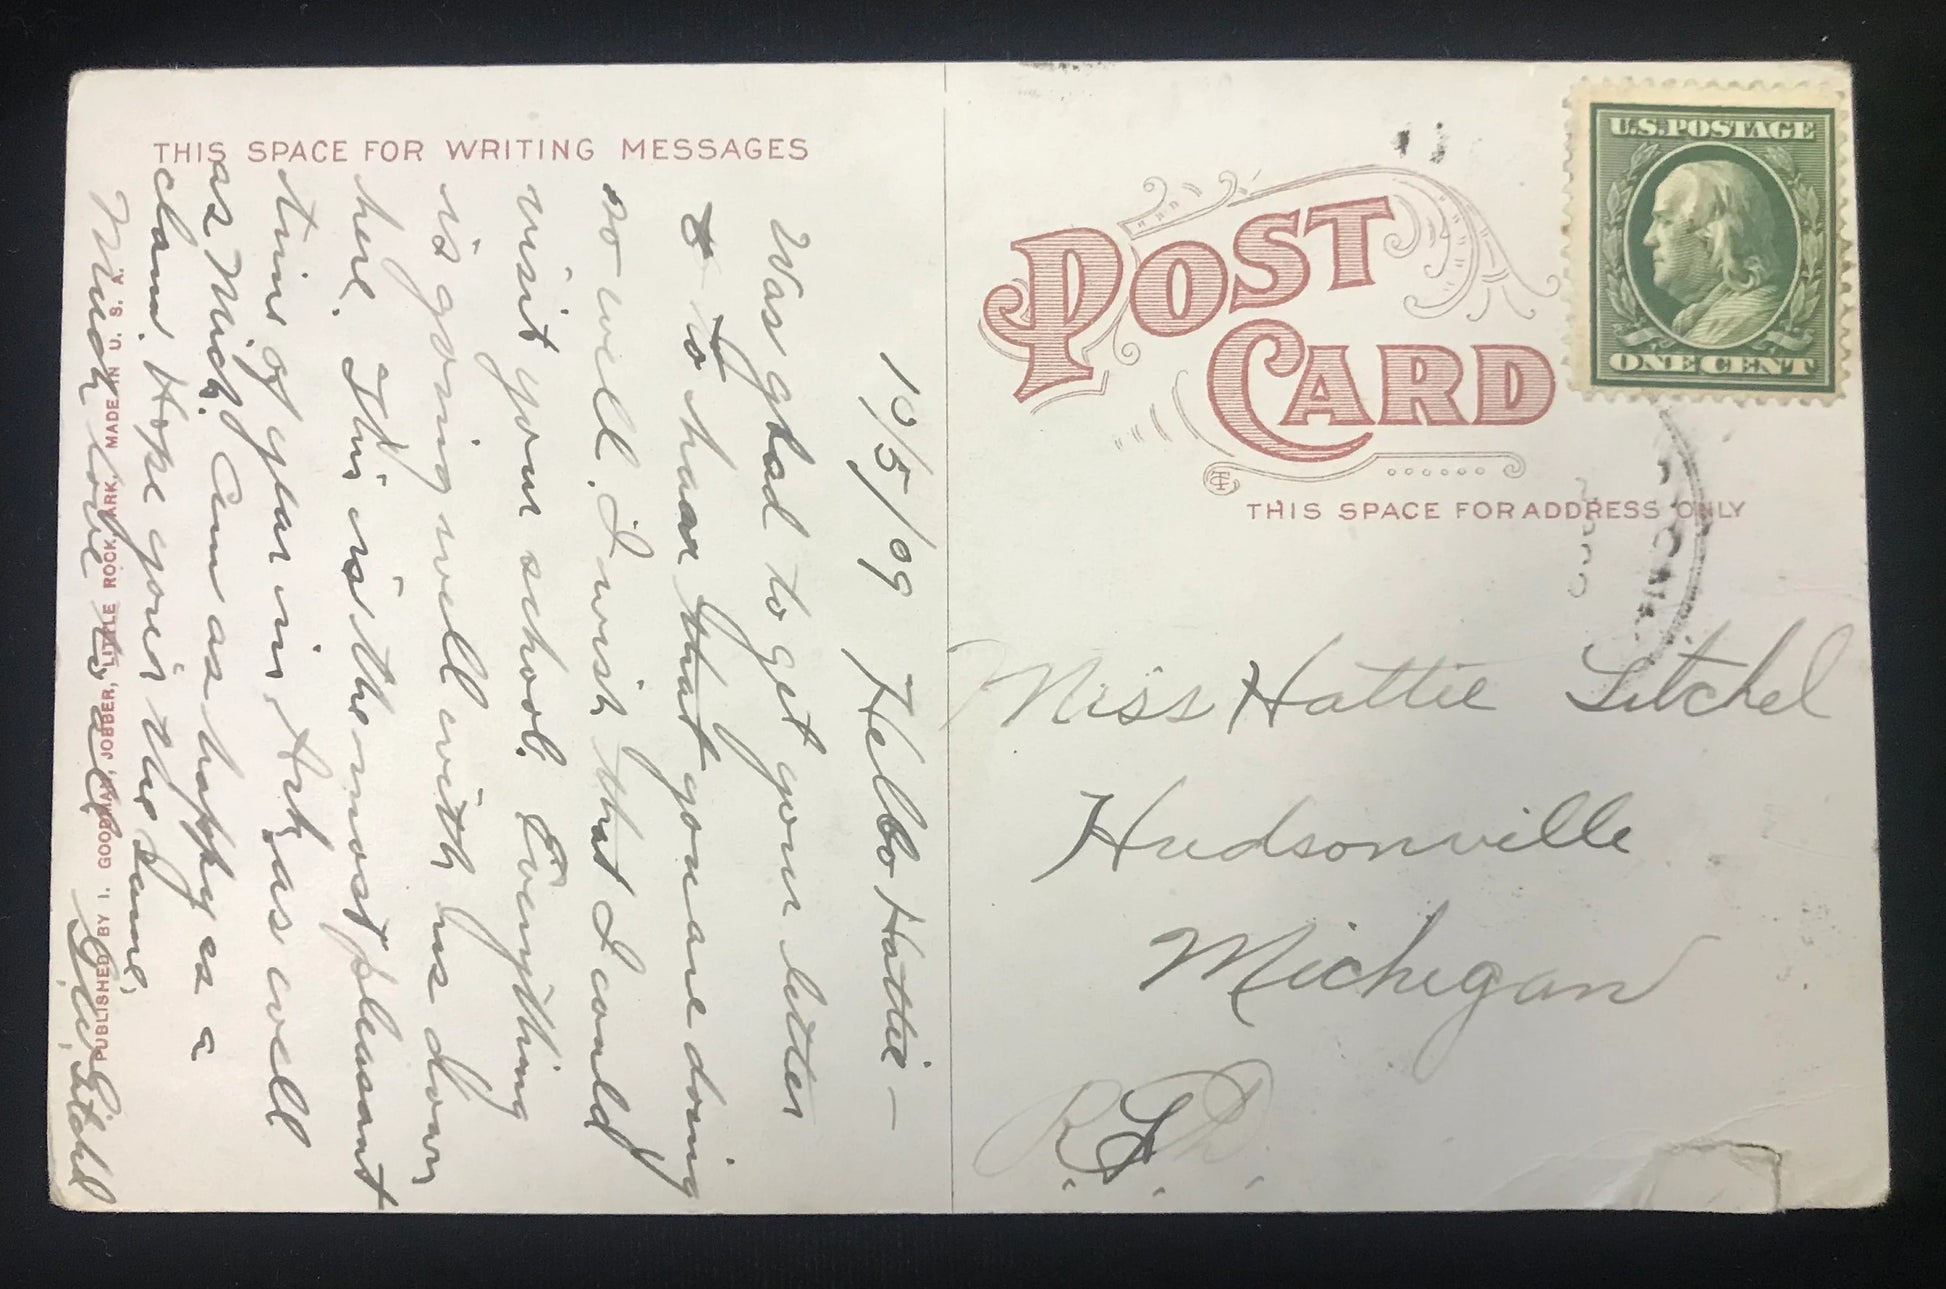 THIS SPACE FOR WRITING MESSAGES
10/5/09 Hello Hattie –
Was glad to get your letter
& to hear that you are doing
so well. I wish that I could
visit your school. Everything
is going well with us down
here. This is the most pleasant
time of year in Ark, as well
as Mich. Am as happy as a
clam. Hope you're the same,
Much love to all
Litchel
PUBLISHED BY I. GOODMAN, JOBBER, LITTLE ROCK, ARK, MADE IN U. S. A.
POST
CARD
THIS SPACE FOR ADDRESS ONLY
U.S. POSTAGE
ONE CENT
Miss Hattie Litchel
Hudsonville
Michigan
R.F.D.